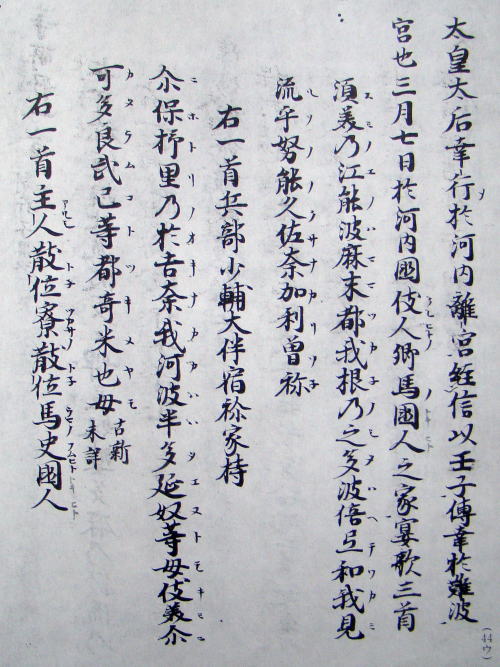 太皇太后幸行於河内離宮經信以壬子傳幸於難波
宮也三月七日於河内國伎人郷馬國人之家宴歌三首
須美乃江能波麻末都我根乃之多波倍弖和我見
流乎努能久佐奈加利曽祢
右一首兵部少輔大伴宿祢家持
尒保杼里乃於吉奈我河波半多延奴等母伎美尒
可多良武己等都奇米也母 古新未詳
右一首主人散位寮散位馬史國人
(44ウ)